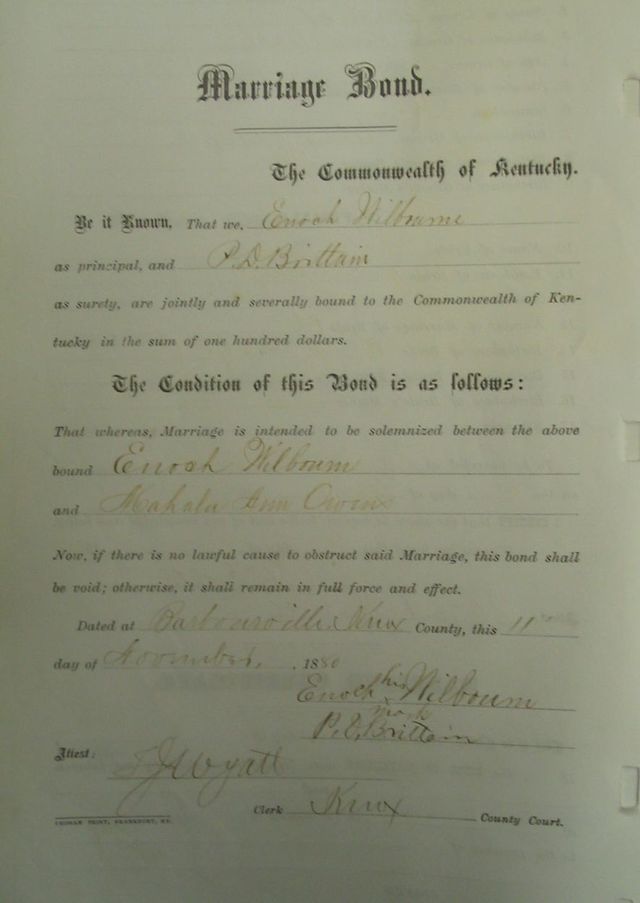 Marriage Bond.
The Commonwealth of Kentucky.
Be it Known, That we, Enoch Wilbourne
as principal, and P.D. Brittain
as surety, are jointly and severally bound to the Commonwealth of Ken-
tucky in the sum of one hundred dollars.
The Condition of this Bond is as follows:
That whereas, Marriage is intended to be solemnized between the above
bound Enoch Wilbourn
and Mahala Ann Owens
Now, if there is no lawful cause to obstruct said Marriage, this bond shall
be void; otherwise, it shall remain in full force and effect.
Dated at Barbourville Knox County, this 11
day of November, 1880
Enoch his Wilbourn
mark
P.D. Brittain
Attest: Wyatt
Clerk Knox County Court.
PRINT, FRANKFORT, KY.